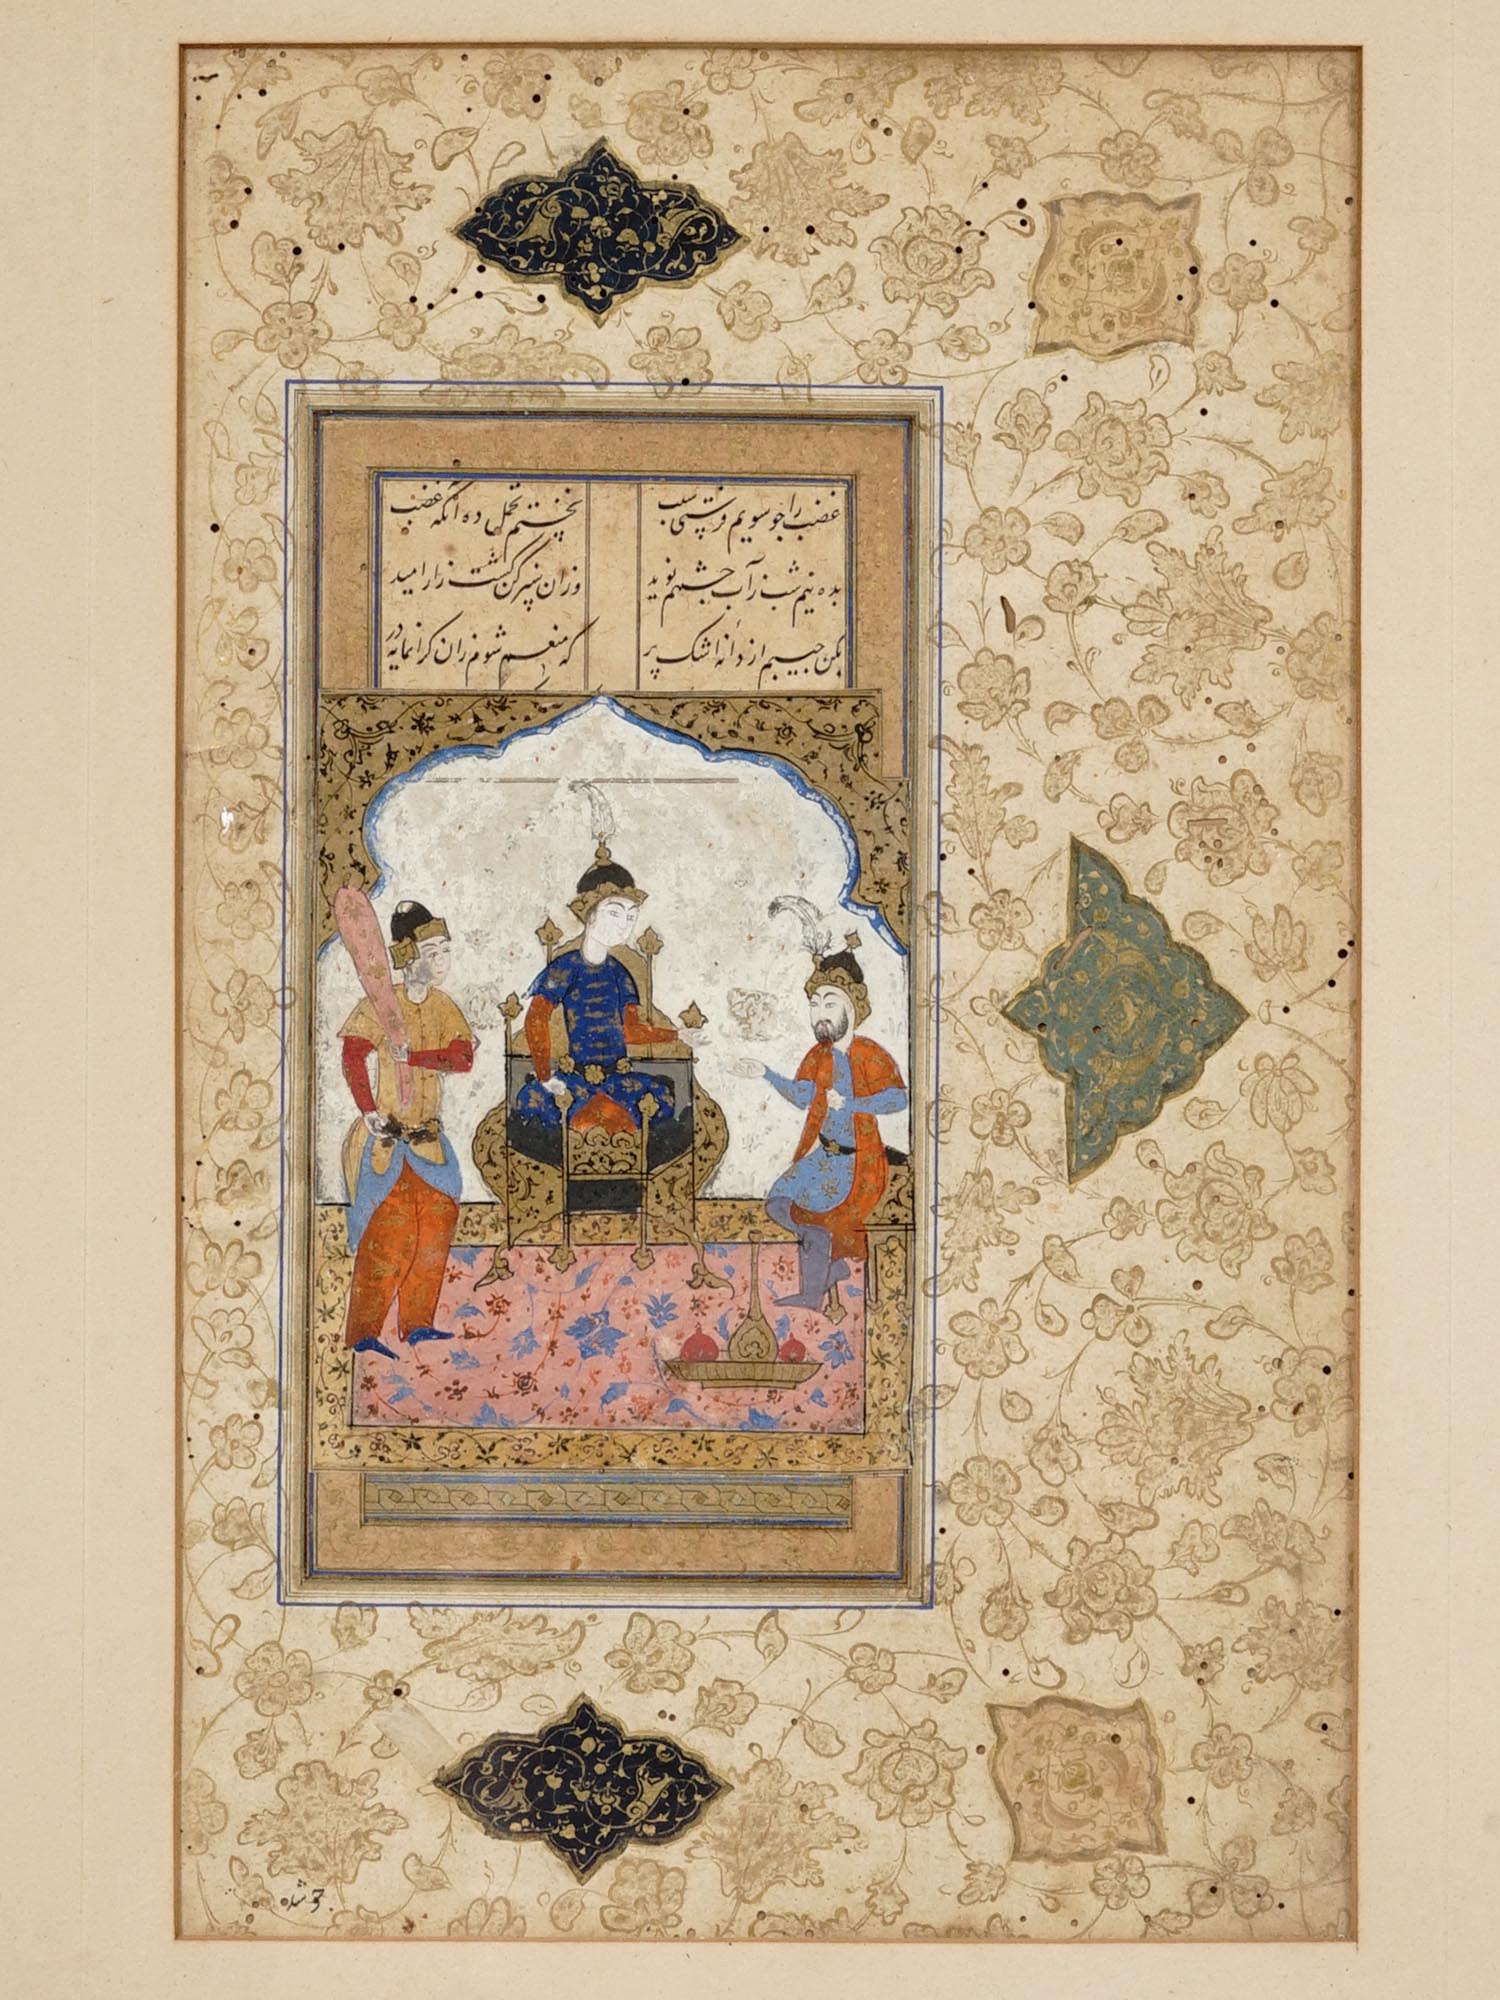 غضب را چو سویم فرستی سبب
بخشتم تحمل ده آنگه غضب
بده نیم شب ز آب چشمم نوید
وزان سبز کن کشت زار امید
بکن جیبم از دانه اشک پر
که منعم شوم زان گرانمایه در